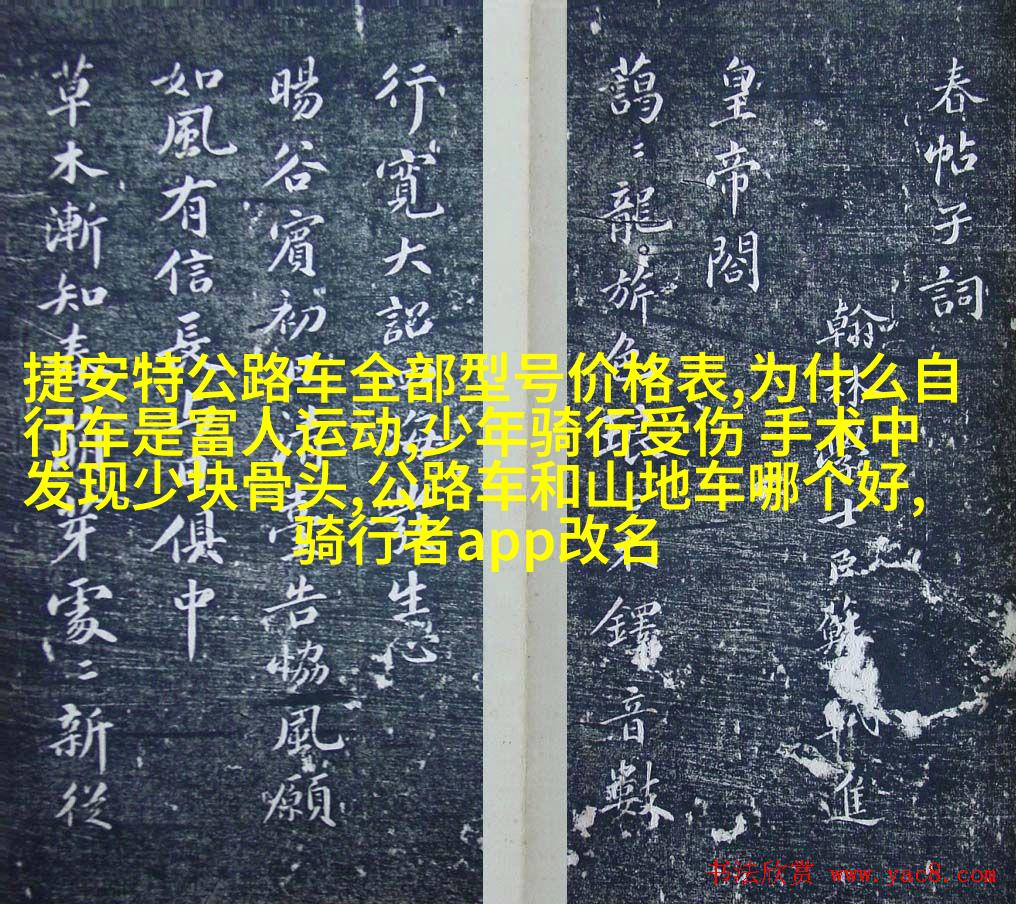 捷安特公路车全部型号价格表,为什么自
行车是富人运动,少年骑行受伤 手术中
发现少块骨头,公路车和山地车哪个好,
骑行者app改名
春帖子詞
翰林學士臣蘇軾進
皇帝閤
藹〻龍旂色木鐸音數
行寬大詔四生心
暘谷賓初日清臺告協風願
如風有信長與日俱中
草木漸知春萌芽處〻新從
书法欣赏 www.yac8.com